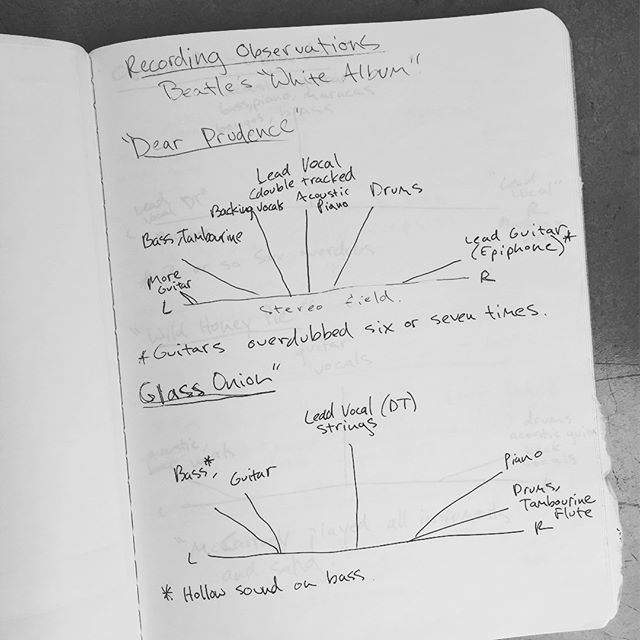 Recording Observations
Beatle's "White Album"
"Dear Prudence"
Lead Vocal
(double tracked
Backing vocals
Acoustic
Piano
Drums
Bass, Tambourine
Lead Guitar*
(Epiphone)
More
Guitar
L
R
Stereo field.
* Guitars overdubbed six or seven times.
Glass Onion"
Lead Vocal (DT)
Strings
Bass*,
Guitar
Piano
Drums,
Tambourine
Flute
L
R
* Hollow sound on bass.